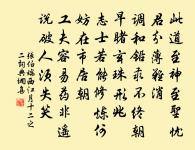 此道至神至聖憂
君分薄難消
調和鉛汞不終朝
早睹玄珠形兆
志士若能修煉何
妨在市居朝
工夫容易药非遥
說破人須失笑
張伯端西江月十二之